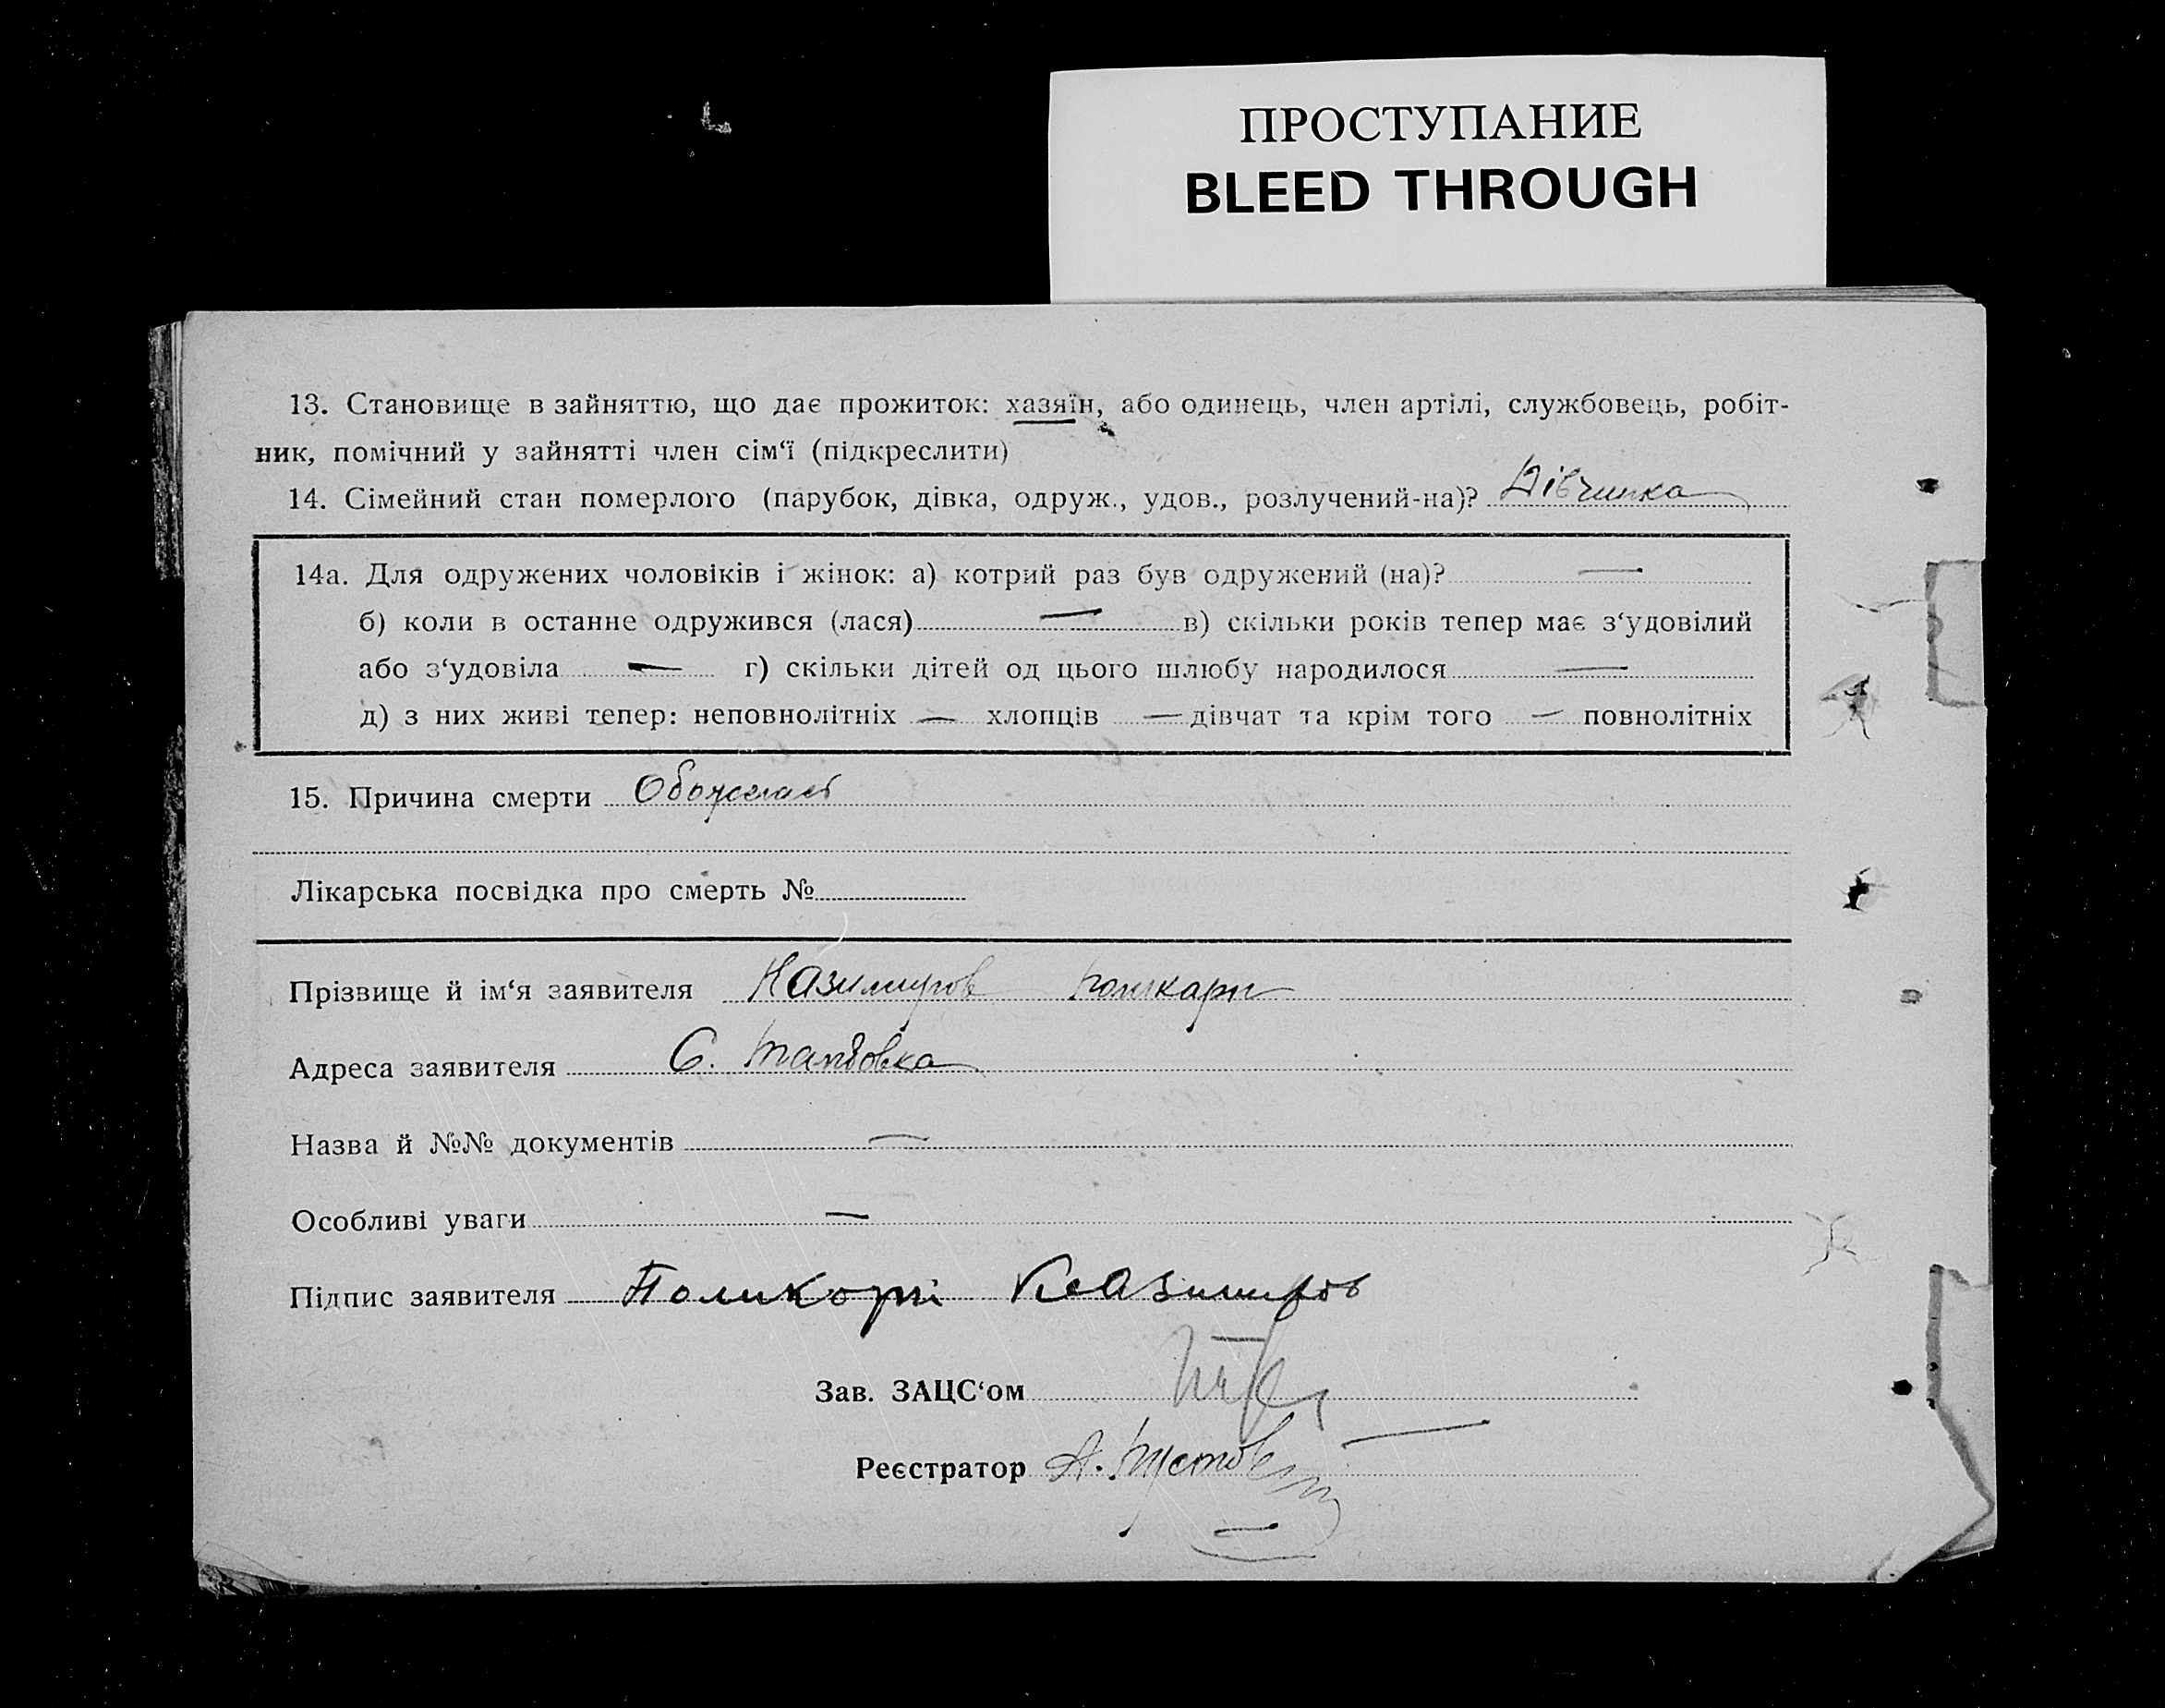 ПРОСТУПАНИЕ
BLEED THROUGH
13. Становище в зайняттю, що дає прожиток: хазяїн, або одинець, член артілі, службовець, робіт-
ник, помічний у зайнятті член сім‘ї (підкреслити)
14. Сімейний стан померлого (парубок, дівка, одруж., удов., розлучений-на)? Дівчинка
14а. Для одружених чоловіків і жінок: а) котрий раз був одружений (на)? —
б) коли в останне одружився (лася) — в) скільки років тепер має з‘удовілий
або з‘удовіла — г) скільки дітей од цього шлюбу народилося —
д) з них живі тепер: неповнолітніх — хлопців — дівчат та крім того — повнолітніх
15. Причина смерти
Лікарська посвідка про смерть №
Прізвище й ім‘я заявителя Казимиров Поликарп
Адреса заявителя С.
Назва й №№ документів —
Особливі уваги —
Підпис заявителя Поликорп Казимиров
Зав. ЗАЦС‘ом
Реєстратор А.